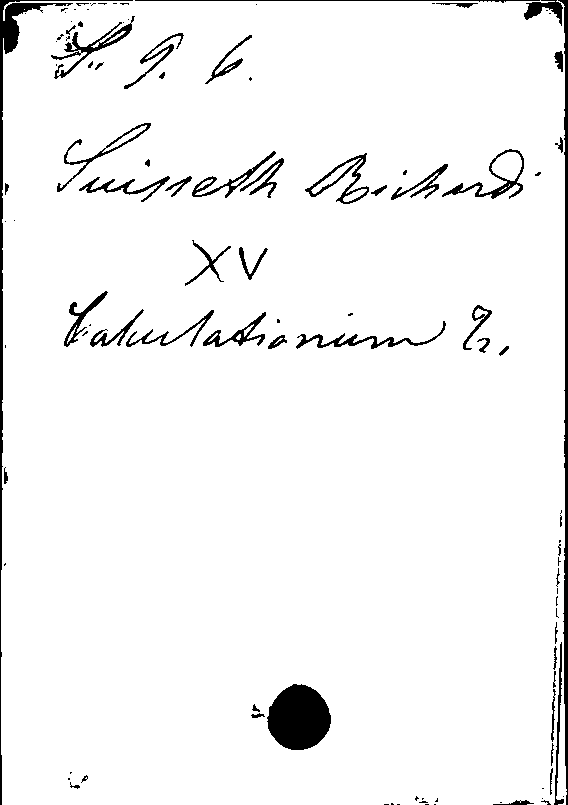 S. 9. 6.
Suisseth Richardi
XV
Calculationum